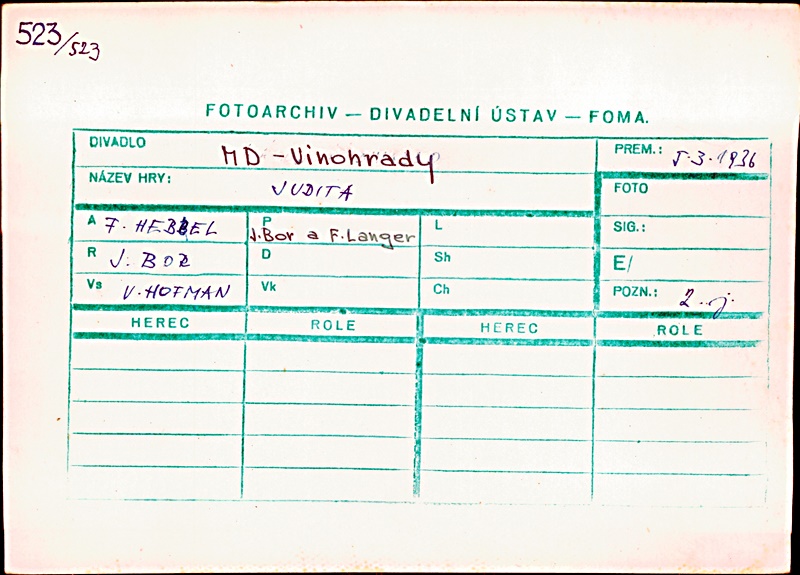 523/523
FOTOARCHIV — DIVADELNÍ ÚSTAV — FOMA.
DIVADLO MD - Vinohrady PREM.: 5.3.1936
NÁZEV HRY: JUDITA FOTO
A F. HEBBEL P J. Bor a F. Langer L SIG.:
R J. BOR D Sh E/
Vs V. HOFMAN Vk Ch POZN.: 2. j.
HEREC ROLE HEREC ROLE